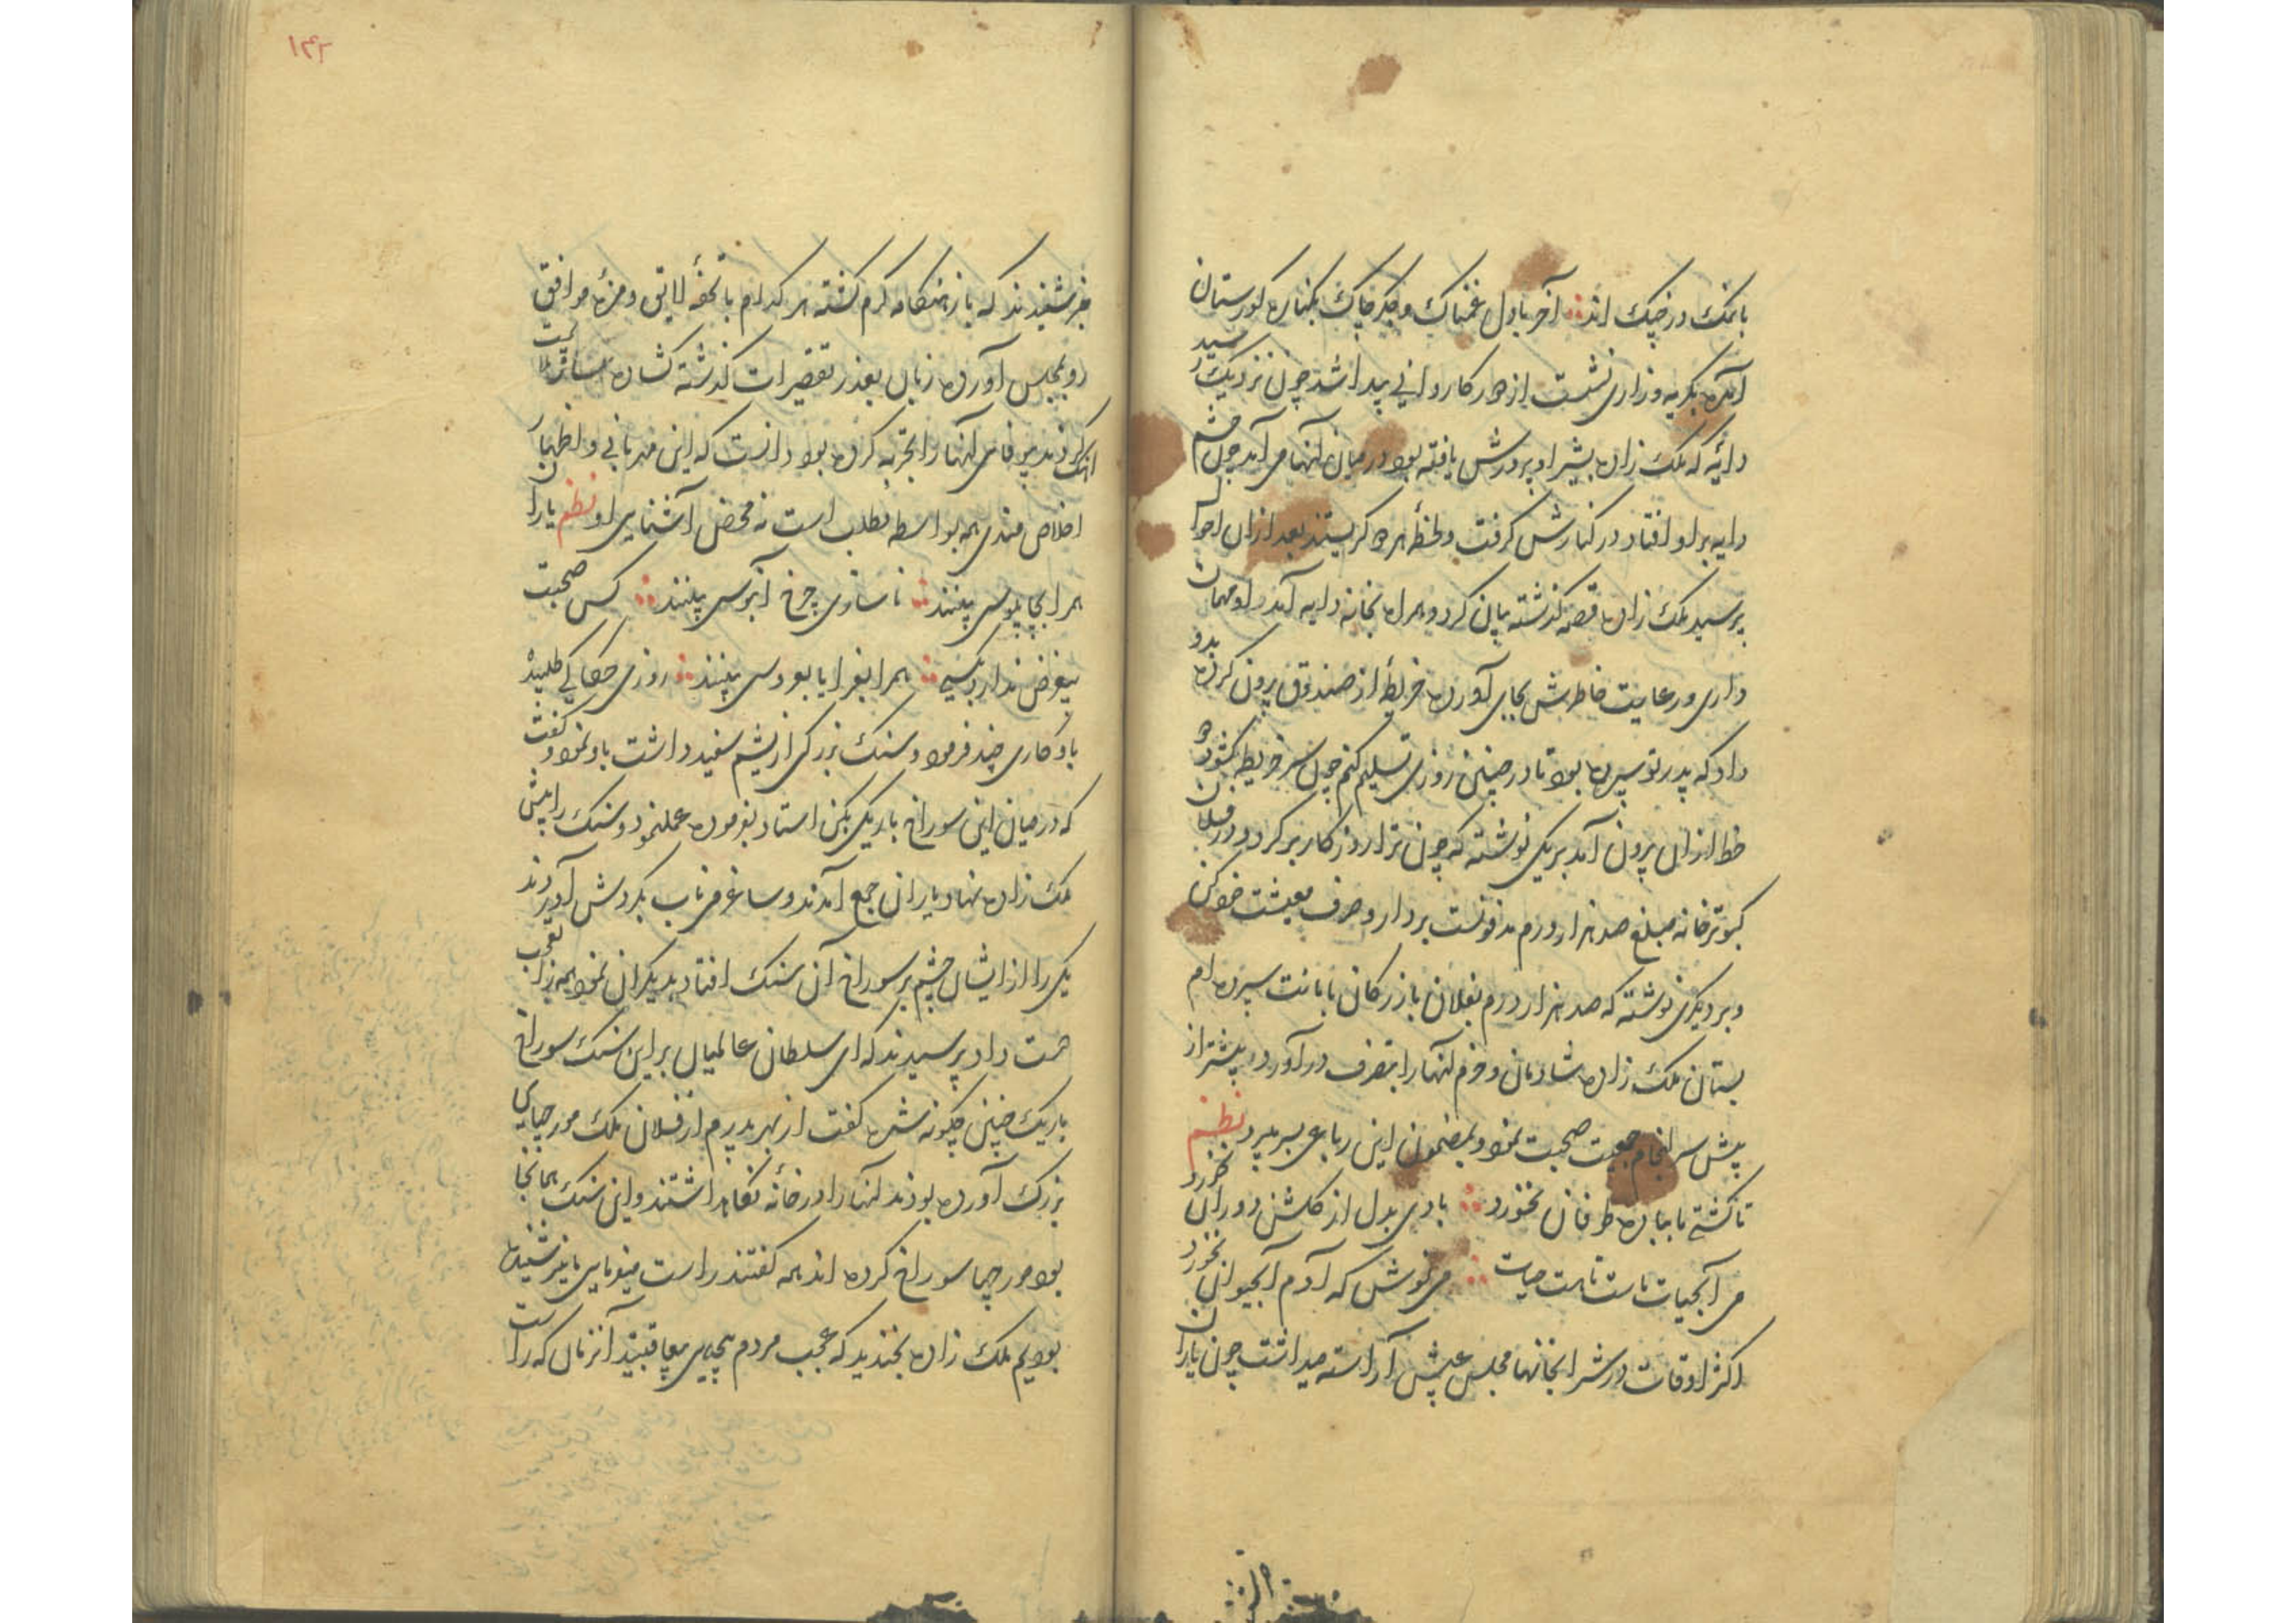 بانمک در خپک اند آخر با دل غمناک و جگر چاک بکناره کورستان
آمده بگریه و زاری نشست از دور کاروانی پیدا شد چون نزدیک رسید
دائه که ملک زاده بشیر او پرورش یافته بود در میان آنها می آمد چون چشم
دایه برو افتاد در کنارش گرفت و لحظه هر دو گریستند بعد ازان احوال
پرسید ملک زاده قصه گذشته بیان کرد و همراه بخانه دایه آمد او مهمان
داری و رعایت خاطرش بجای آورده خریطه از صندوق بیرون کرده بدو
داد که پدر تو سپرده بود تا در چنین روزی تسلیم کنم چون سر خریطه کشود دو
خط ازان بیرون آمد بر یکی نوشته که چون ترا روزکار برکردد در فلان
کبوترخانه مبلغ صد هزار درم مدفونست بردار و صرف معیشت خود کن
و بر دیگری نوشته که صد هزار درم بفلان بازرکان بامانت سپرده ام
بستان ملک زاده شادمان و خرم آنها را بتصرف درآورد و بیشتر از
پیش سرانجام جمعیت صحبت نمود و بمضمون این رباعی بسر میبرد نظم
تا کشتی ما بباده طوفان نخورد بادی بدل از کلشن دوران نخورد
می آبحیات ماست تا هست حیات می نوش که آدم آبحیوان نخورد
اکثر اوقات در شرابخانها مجلس عیش آراسته میداشت چون یاران
خبر شنیدند که باز هنکامه کرم کشته هر کدام با تحفه لایق و مزه موافق
رو بمجلس آورده زبان بعذر تقصیرات کذشته کشاده
کردند بیوفایی آنها را تجربه کرده بود دانست که این مهربانی و اظهار
اخلاص مندی همه بواسطه مطلب است نه محض آشنایی او نظم یاران
همرا بچاپلوسی بینند ناسازی چرخ آبنوسی بینند کس صحبت
بیغرض ندارد بکسی همرا بغرایا بعروسی بینند روزی حکاکی طلبید
باو کاری چند فرمود و سنک بزرکی از یشم سفید داشت باو نمود و کفت
که در میان این سوراخ باریکی بکن استاد بفرموده عمل نمود و سنک را پیش
ملک زاده نهاد یاران جمع آمدند و ساغر می ناب بکردش آوردند
یکی را از ایشان چشم بر سوراخ آن سنک افتاد بدیکران نمود همه را تعجب
دست داد پرسیدند که ای سلطان عالمیان بر این سنک سوراخ
باریک چنین چکونه شده کفت از بهر پدرم از فلان ملک مورچهای
بزرک آورده بودند آنها را در خانه نکاهداشتند و این سنک همانجا
بود مورچها سوراخ کرده اند همه کفتند راست میفرمایی ما نیز شنیده
بودیم ملک زاده بخندید که عجب مردم بیعاقبتند آنزمان که راست